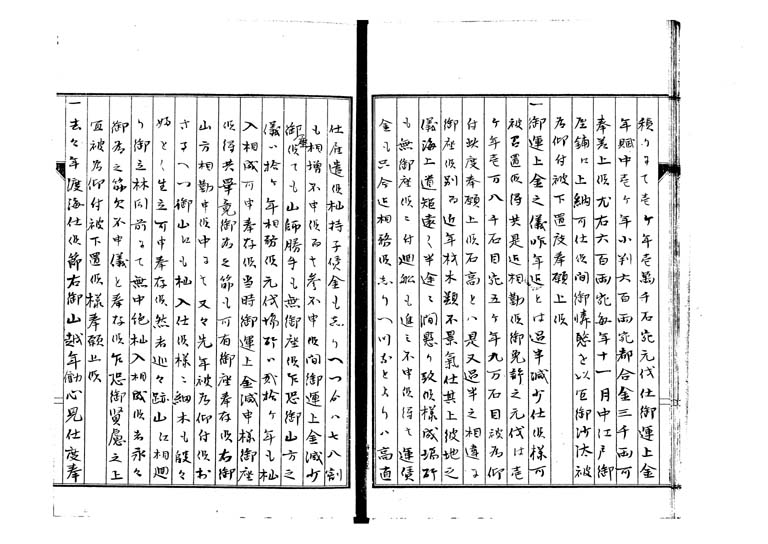 頼りニて壱ヶ年壱萬千石宛元伐仕御運上金
年賦中壱ヶ年小判六百両宛都合金三千両可
奉差上候尤右六百両宛毎年十一月中江戸御
座鋪江上納可仕候間御憐愍を以宜御沙汰被
為仰付被下置度奉願上候
一御運上金之儀昨年迠とは過半減少仕候様可
被召置候得共是迠相勤候御免許之元伐は壱
ヶ年壱万八千石目宛五ヶ年九万石目被為仰
付致度奉願上候石高とハ是又過半之相違ニ
御座候別而近年材木類不景氣仕其上彼地之
儀海上道短遠く半途ニ澗懸り致候様成場所
も無御座候ニ付廻船も進ミ不申候得は運賃
金も只今迠相勤候より
仕庭遣候杣持子傍金もより八七八割
も相増不申候而は参不申候間御運上金減少
御座候ても山師勝手も無御座候乍恐御山方之
儀ハ拾ヶ年相勤候元伐場所ハ貳拾ヶ年も杣
入相成可申奉存候当時御運上金減申様御座
候得共畢竟御為之筋も可有御座奉存候右御
山方相勤申候中ニて又々先年被為仰付候
御山江も杣入仕候様ニ細木も段々
生立可申奉存候然者巡々跡山江相廻
り御立林同前ニて無申絶杣入相成候者永々
御為之筋欠不申儀と奉存候乍恐御賢慮之上
宜被為仰付被下置候様奉願上候
一去々年渡海仕候節右御山越年働心見仕度奉